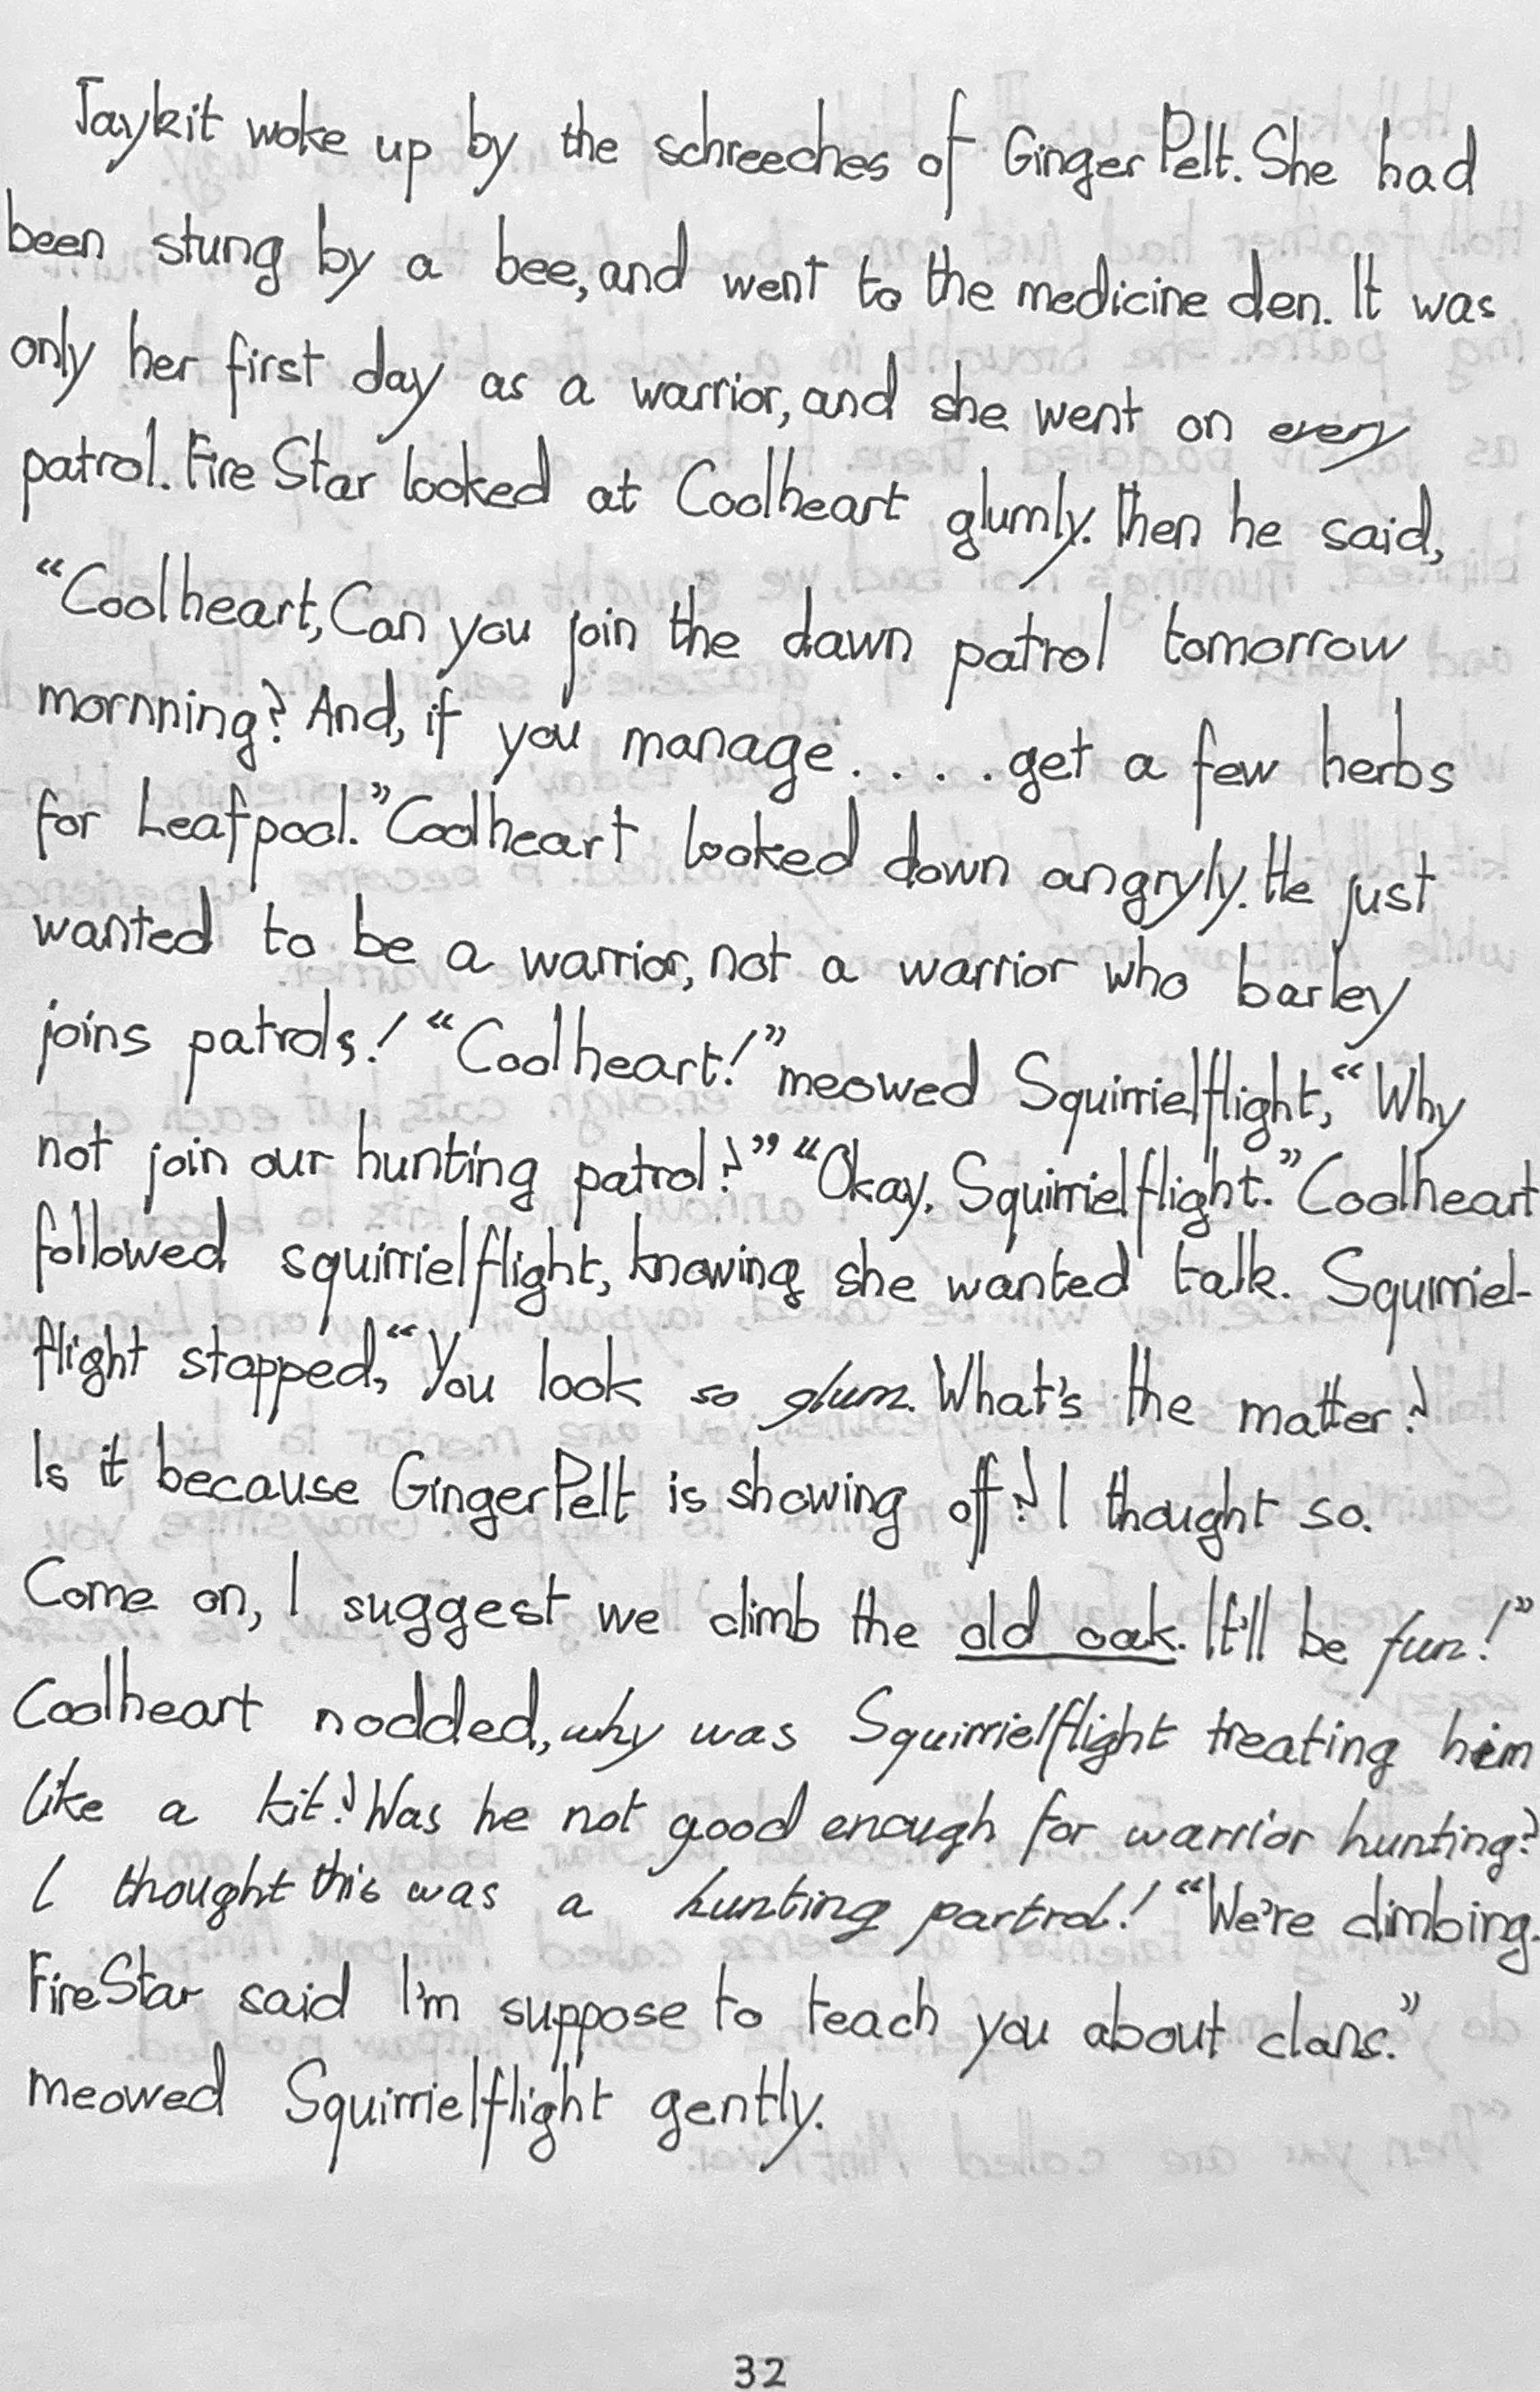 Jaykit woke up by the schreeches of Ginger Pelt. She had
been stung by a bee, and went to the medicine den. It was
only her first day as a warrior, and she went on every
patrol. Fire Star looked at Coolheart glumly. Then he said,
“Coolheart, Can you join the dawn patrol tomorrow
mornning? And, if you manage . . . . get a few herbs
for Leafpool.” Coolheart looked down angryly. He just
wanted to be a warrior, not a warrior who barley
joins patrols! “Coolheart!” meowed Squirrielflight, “Why
not join our hunting patrol?” “Okay, Squirrielflight.” Coolheart
followed squirrielflight, knowing she wanted talk. Squirriel-
flight stopped, “You look so glum. What's the matter?
Is it because GingerPelt is showing off? I thought so.
Come on, I suggest we climb the old oak. It'll be fun!”
Coolheart nodded, why was Squirrielflight treating him
like a kit? Was he not good enough for warrior hunting?
I thought this was a hunting partrol! “We're climbing.
FireStar said I'm suppose to teach you about clans.”
meowed Squirrielflight gently.
32